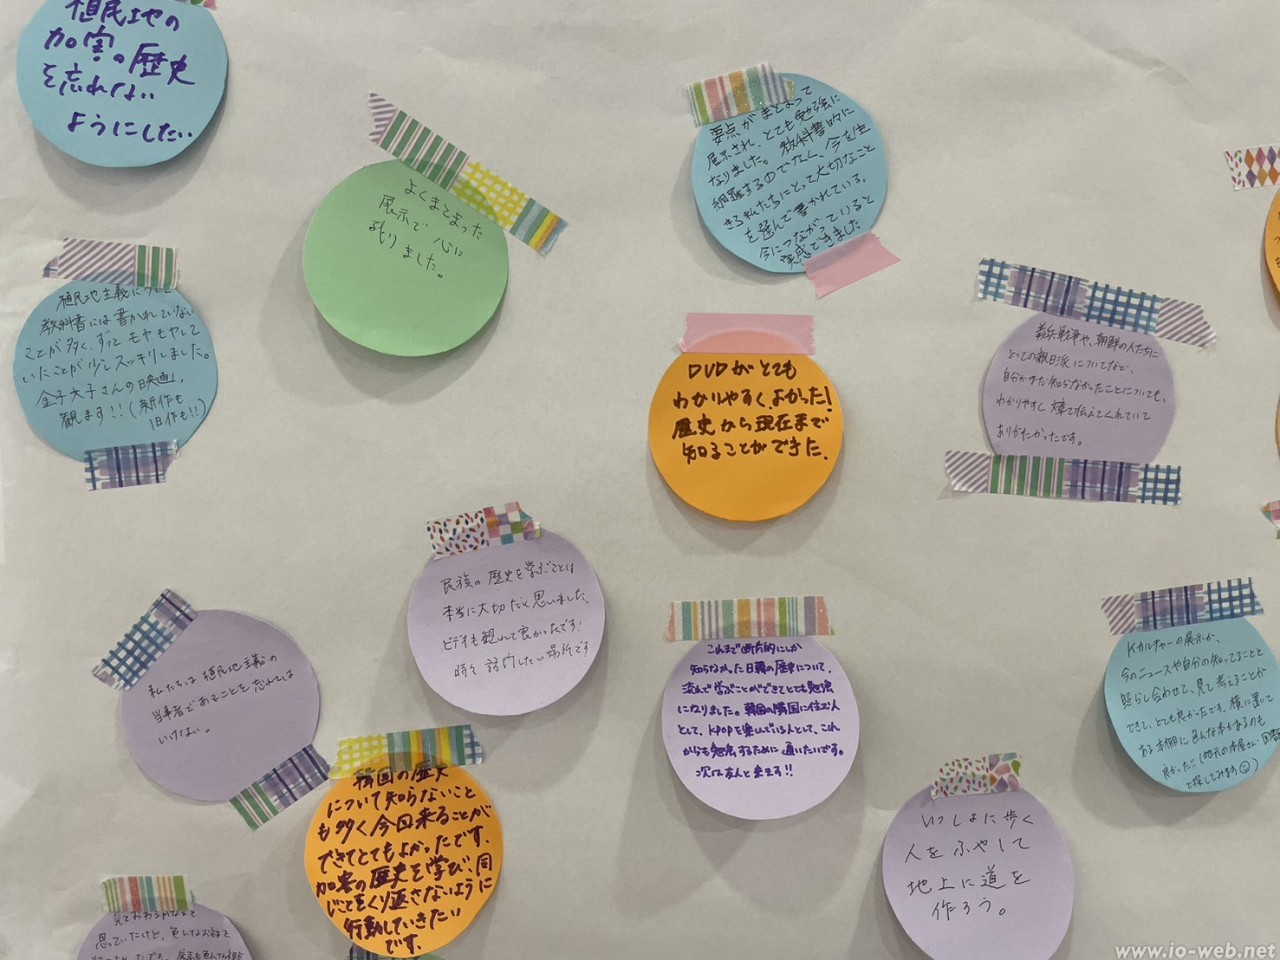 植民地の
加害の歴史
を忘れない
ようにしたい
よくまとまった
展示で心に
残りました。
要点がまとまって
展示され、とても勉強に
なりました。教科書的に
網羅するのでなく、今を生
きる私たちにとって大切なこと
を選んで書かれている。
今につながっていると
実感できました
植民地主義に
教科書には書かれていない
ことが多く、ずっとモヤモヤして
いたことが少しスッキリしました。
金子文子さんの映画、
観ます!!(新作も
旧作も!!)
DVDがとても
わかりやすく、よかった!
歴史から現在まで
知ることができた.
義兵戦争や、朝鮮の人たちに
とっての親日派についてなど、
自分がまだ知らなかったことについても、
わかりやすく 伝えてくれていて
ありがたかったです。
民族の歴史を学ぶことは
本当に大切だと思いました。
ビデオも観れて良かったです!
時々訪ウしたい場所です
私たちは植民地主義の
当事者であることを忘れては
いけない。
これまで断片的にしか
知らなかった日韓の歴史について、
流れで学ぶことができてとても勉強
になりました。韓国の隣国に住む人
として、KPOPを楽しんでいる人として、これ
からも勉強するために通いたいです。
次は友人と来ます!!
Kカルチャーの展示が、
今のニュースや自分の知ってることと
照らし合わせて、見て考えることが
できて、とても良かったです。横に置いて
ある本棚に色んな本があるのも
良かった!!(地元の本屋さん・図書
で探してみます☺)
韓国の歴史
について知らないこと
も多く今回来ることが
できてとてもよかったです.
加害の歴史を学び、同
じことをくり返さないように
行動していきたい
です.
いっしょに歩く
人をふやして
地上に道を
作ろう。
思っていたけど、色んなお話を
www.io-web.net